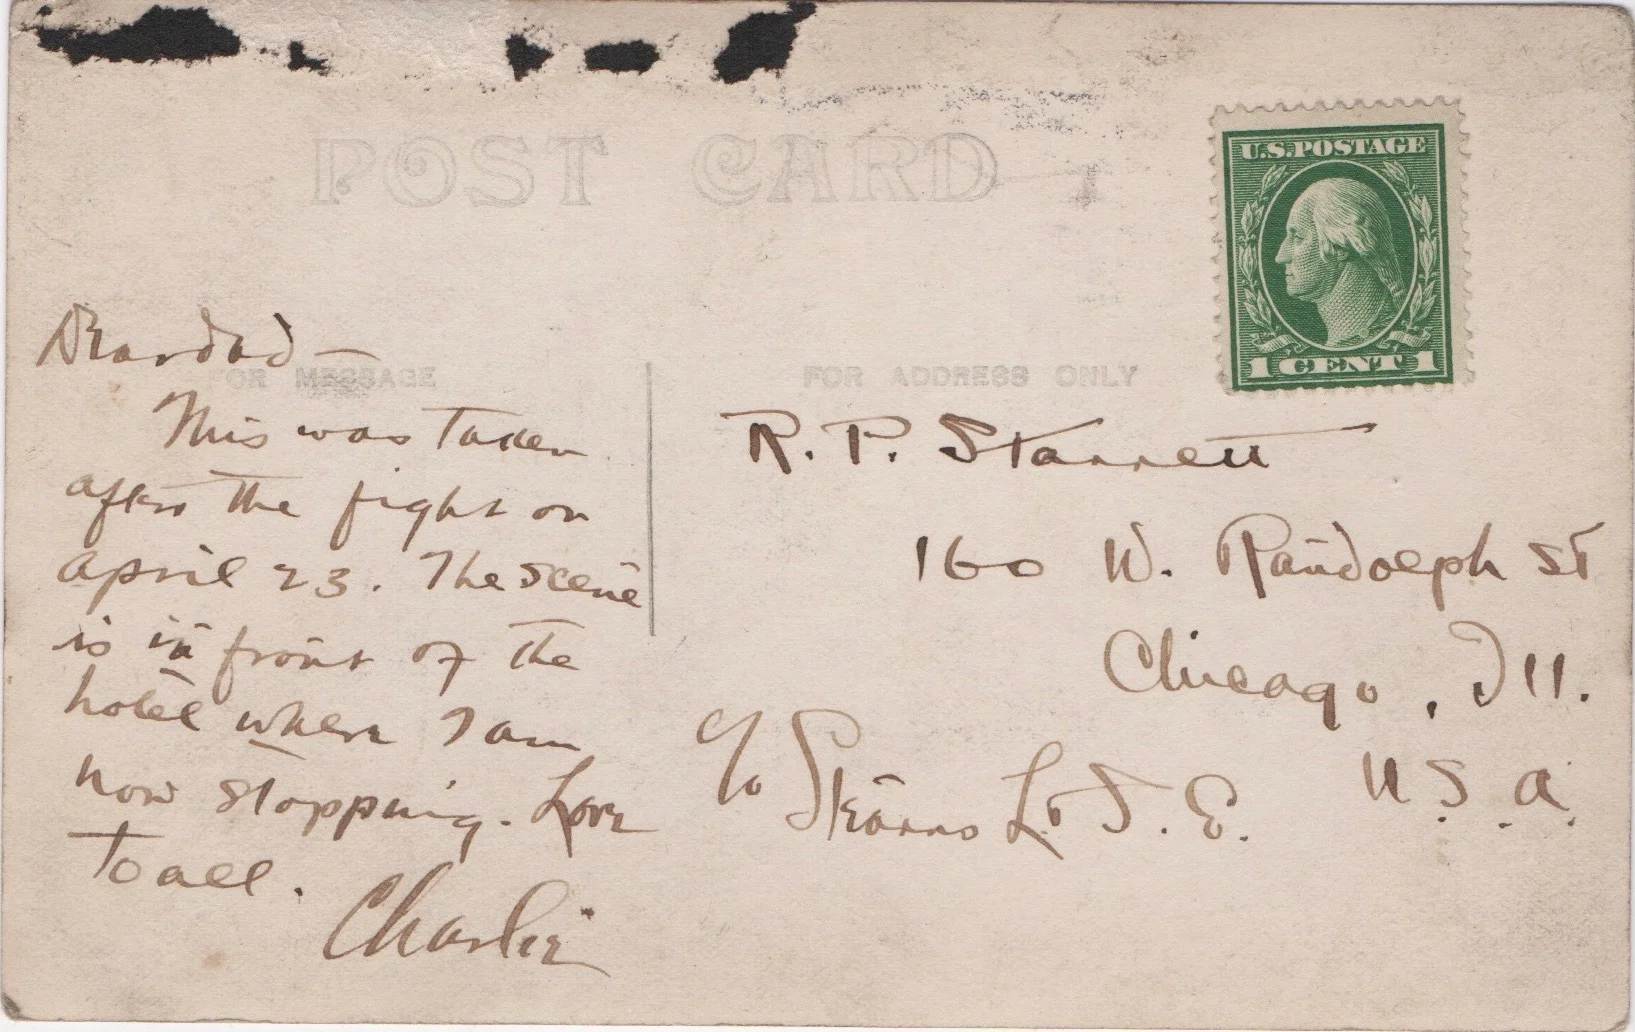 POST CARD
U.S. POSTAGE
1 CENT 1
FOR MESSAGE
FOR ADDRESS ONLY
Dear dad —
This was taken
after the fight on
april 23. The scene
is in front of the
hotel where I am
now stopping. Love
to all.
Charlie
R. P. Starrett
160 W. Randolph St
Chicago, Ill.
U.S.A.
c/o Stearns L & E.